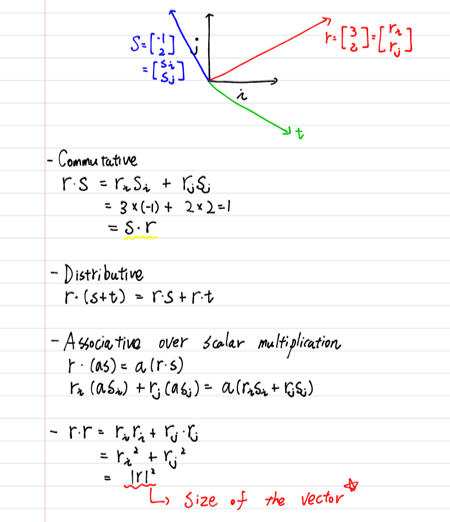 S = [-1 2]
= [Si Sj]
j
r = [3 2] = [ri rj]
i
t
- Commutative
r·s = riSi + rjSj
= 3×(-1) + 2×2=1
= S·r
- Distributive
r·(s+t) = r·s + r·t
- Associative over scalar multiplication
r·(as) = a(r·s)
ri(aSi) + rj(aSj) = a(riSi + rjSj)
- r·r = riri + rj·rj
= ri² + rj²
= |r|²
↳ Size of the vector ☆